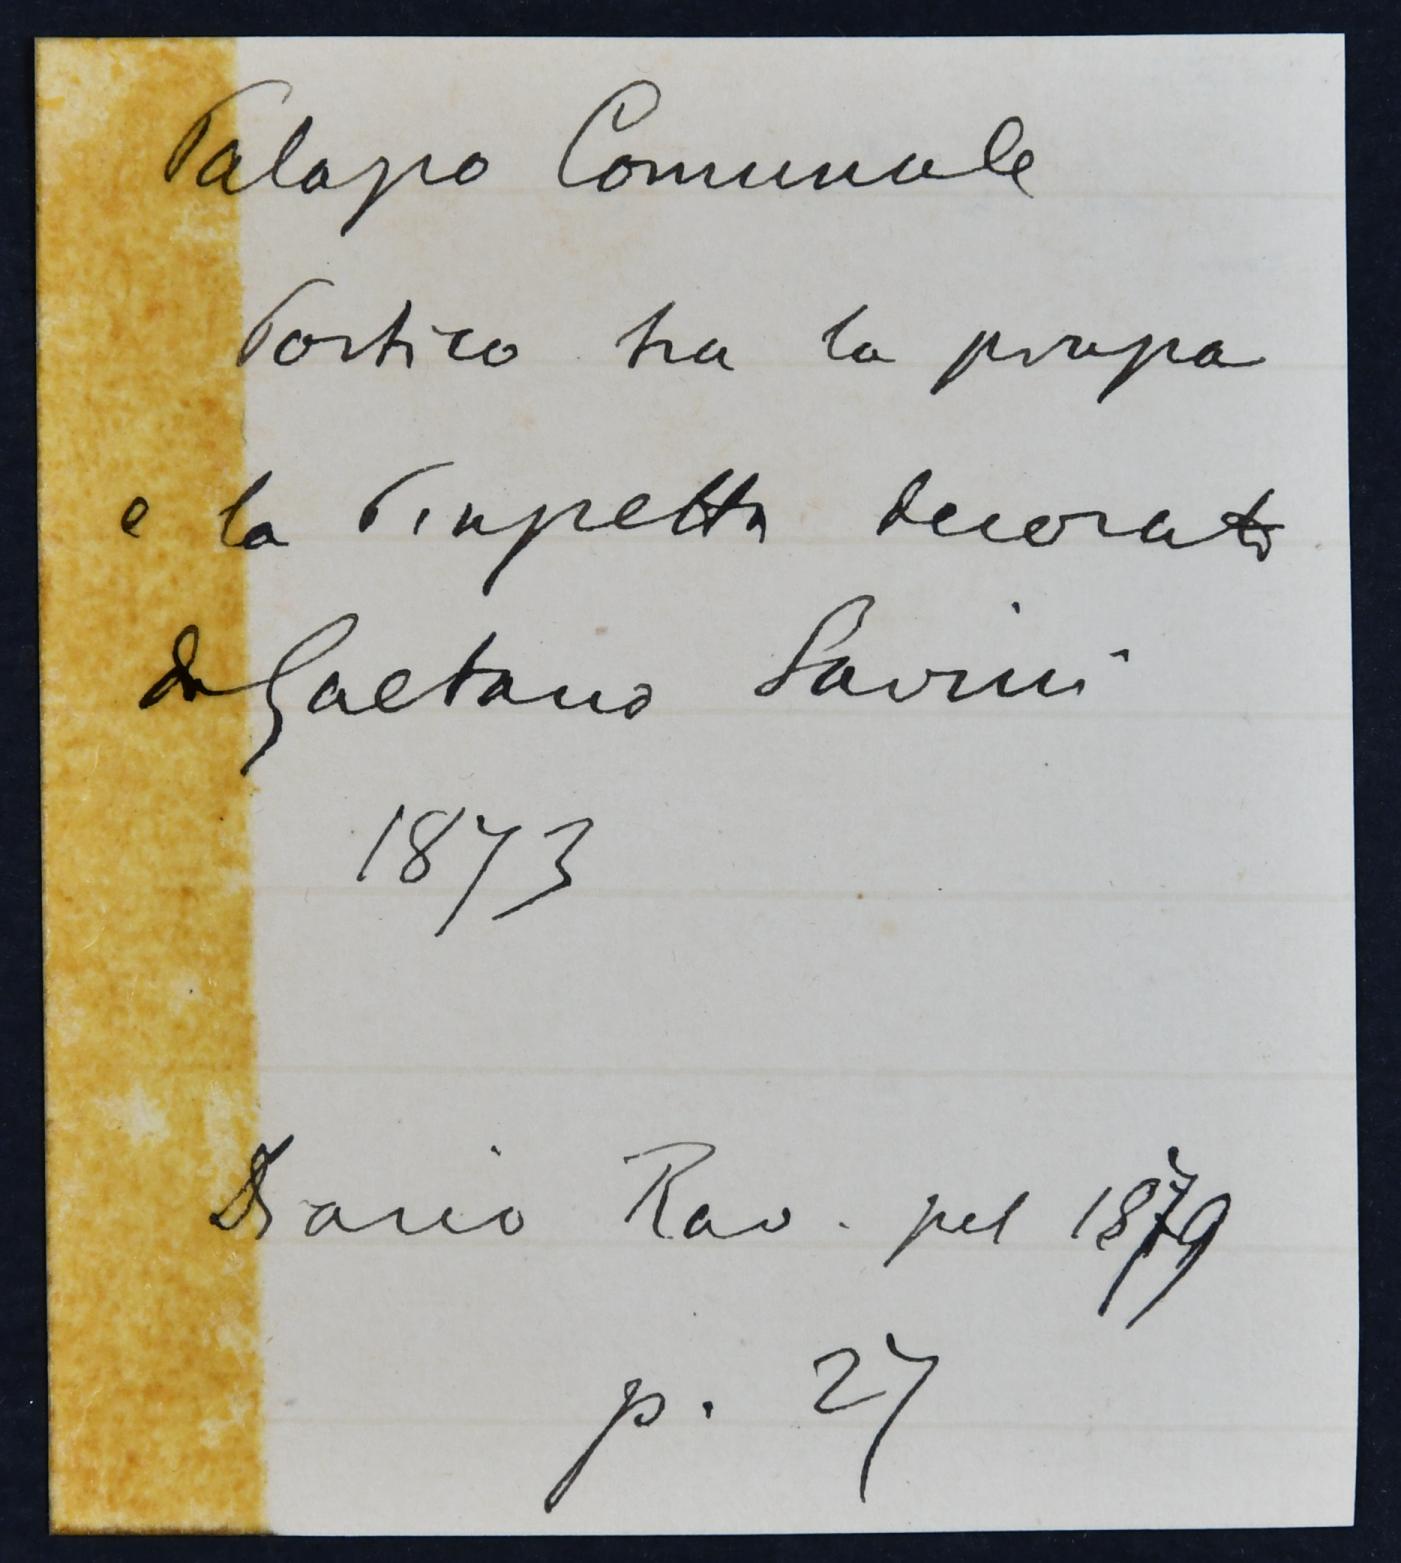 Palazzo Comunale
Portico tra la piazza
e la Piazzetta decorato
da Gaetano Savini
1873
Diario Rav. pel 1879
p. 27